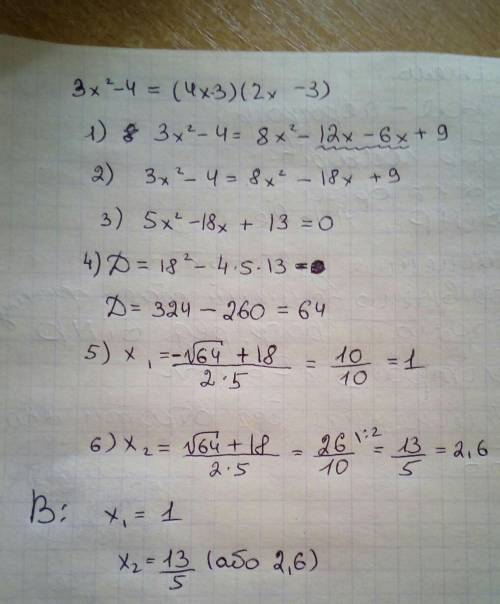 3x²-4 = (4x-3)(2x -3)
1) 3x²-4 = 8x²- 12x - 6x + 9
2) 3x²-4 = 8x² - 18x + 9
3) 5x²-18x + 13 = 0
4) D = 18² - 4·5·13 =
D = 324 - 260 = 64
5) x₁ = (-√64 + 18)/(2·5) = 10/10 = 1
6) x₂ = (√64 + 18)/(2·5) = 26/10 \:2 = 13/5 = 2,6
В: x₁ = 1
x₂ = 13/5 (або 2,6)